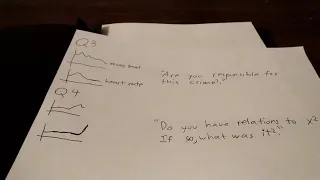 Q3
stress level
heart rate
"Are you responsible for
this crime?"
Q4
"Do you have relations to x?
If so, what was it?"